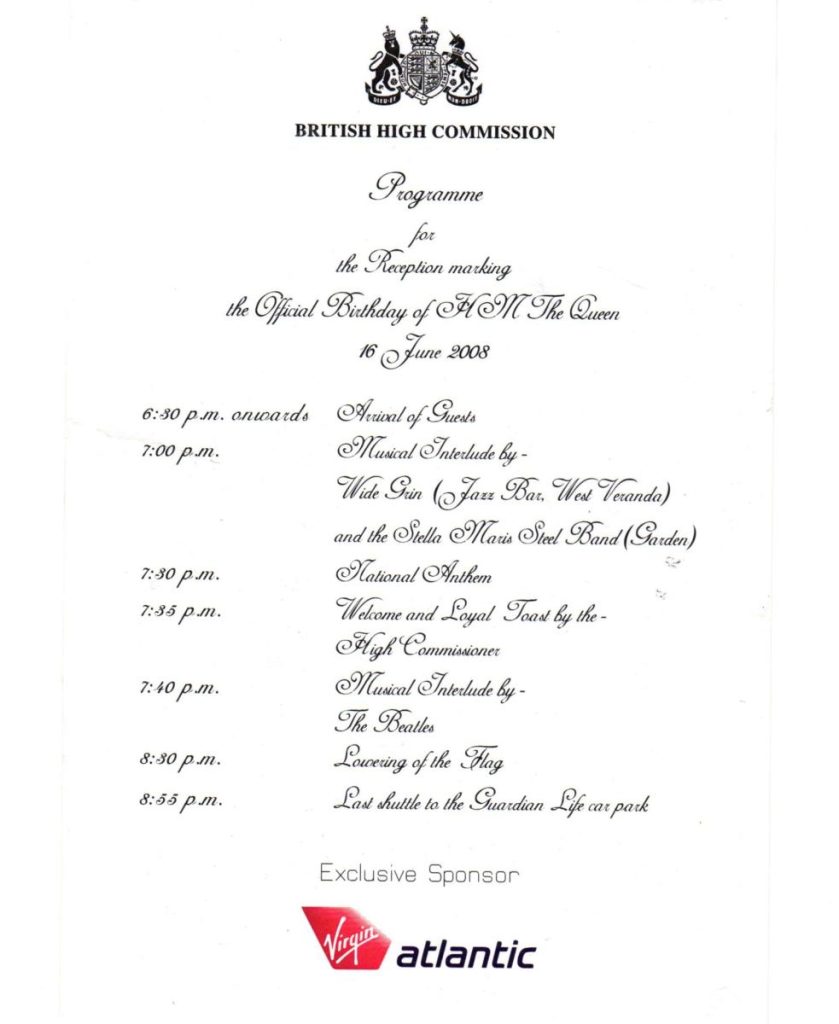 DIEU ET MON DROIT
BRITISH HIGH COMMISSION
Programme
for
the Reception marking
the Official Birthday of HM The Queen
16 June 2008
6:30 p.m. onwards Arrival of Guests
7:00 p.m. Musical Interlude by -
Wide Grin (Jazz Bar, West Veranda)
and the Stella Maris Steel Band (Garden)
7:30 p.m. National Anthem
7:35 p.m. Welcome and Loyal Toast by the -
High Commissioner
7:40 p.m. Musical Interlude by -
The Beatles
8:30 p.m. Lowering of the Flag
8:55 p.m. Last shuttle to the Guardian Life car park
Exclusive Sponsor
Virgin atlantic